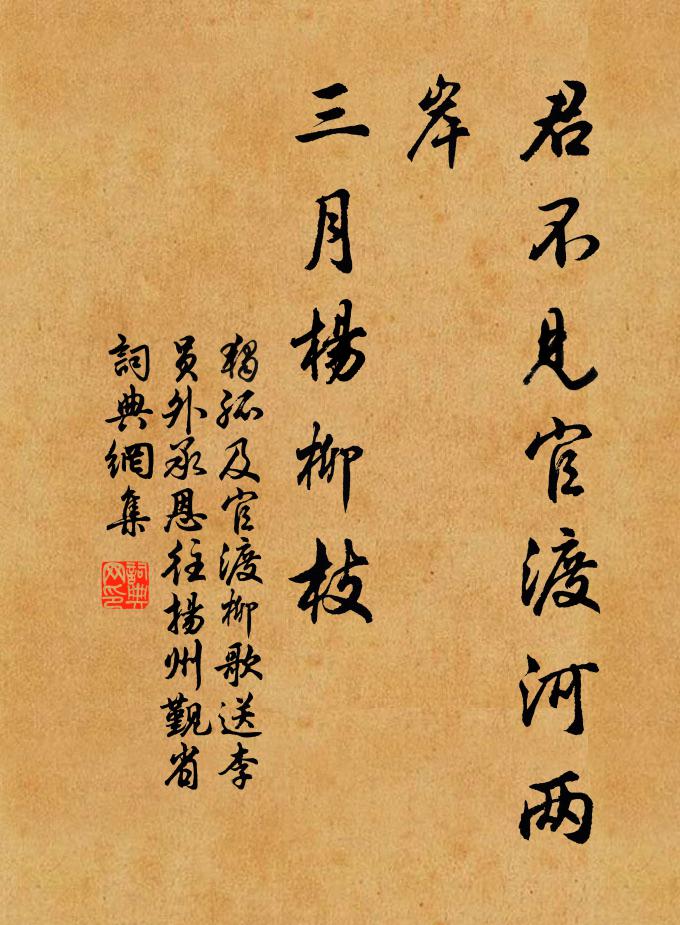 君不见官渡河两
岸
三月楊柳枝
獨孤及官渡柳歌送李
員外承恩往揚州覲省
詞典網集
詞典
网印